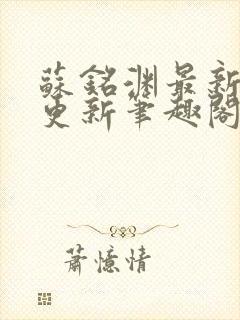 蘇銘淵最新
更新筆趣閣
蕭憶情